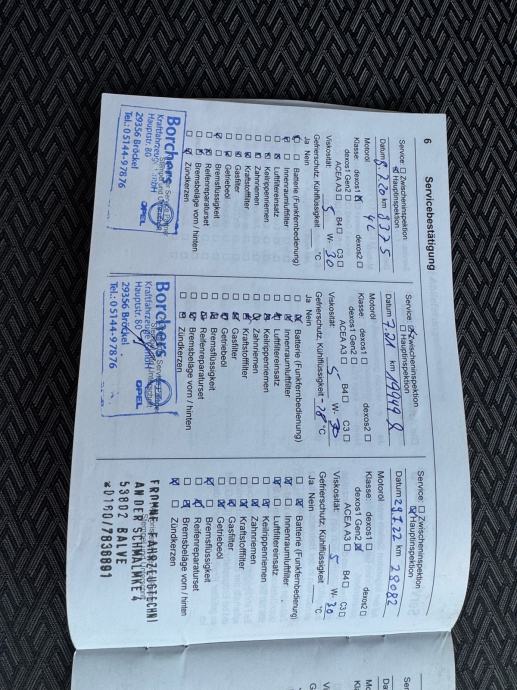 6 Servicebestätigung
Service ☐ Zwischeninspektion
☒ Hauptinspektion
Datum 8.7.20 km 8375
Motoröl 4L
Klasse: dexos1 ☒ dexos2 ☐
dexos1 Gen2 ☐
ACEA A3 ☐ B4 ☐ C3 ☐
Viskosität: 5 W- 30
Gefrierschutz, Kühlflüssigkeit °C
Ja Nein
Batterie (Funkfernbedienung)
Innenraumluftfilter
Luftfiltereinsatz
Keilrippenriemen
Zahnriemen
Kraftstofffilter
Gasfilter
Getriebeöl
Bremsflüssigkeit
Reifenreparaturset
Bremsbeläge vorn / hinten
Zündkerzen
Borchers
Hauptstr. 80
29356 Bröckel
Tel.: 05144-97876
OPEL
Service ☒ Zwischeninspektion
☐ Hauptinspektion
Datum 7.21 km
Motoröl
Klasse: dexos1 ☐ dexos2 ☐
dexos1 Gen2 ☐
ACEA A3 ☐ B4 ☐ C3 ☐
Viskosität: 5 W- 30
Gefrierschutz, Kühlflüssigkeit -28 °C
Ja Nein
Batterie (Funkfernbedienung)
Innenraumluftfilter
Luftfiltereinsatz
Keilrippenriemen
Zahnriemen
Kraftstofffilter
Gasfilter
Getriebeöl
Bremsflüssigkeit
Reifenreparaturset
Bremsbeläge vorn / hinten
Zündkerzen
Borchers
Hauptstr. 80
29356 Bröckel
Tel.: 05144-97876
OPEL
Service ☐ Zwischeninspektion
☒ Hauptinspektion
Datum 29.7.22 km 28082
Motoröl
Klasse: dexos1 ☐ dexos2 ☐
dexos1 Gen2 ☒
ACEA A3 ☐ B4 ☐ C3 ☐
Viskosität: 5 W- 30
Gefrierschutz, Kühlflüssigkeit °C
Ja Nein
Batterie (Funkfernbedienung)
Innenraumluftfilter
Luftfiltereinsatz
Keilrippenriemen
Zahnriemen
Kraftstofffilter
Gasfilter
Getriebeöl
Bremsflüssigkeit
Reifenreparaturset
Bremsbeläge vorn / hinten
Zündkerzen
FROMME FAHRZEUGTECHNI
AN DER SCHMALMKE 4
53802 BALVE